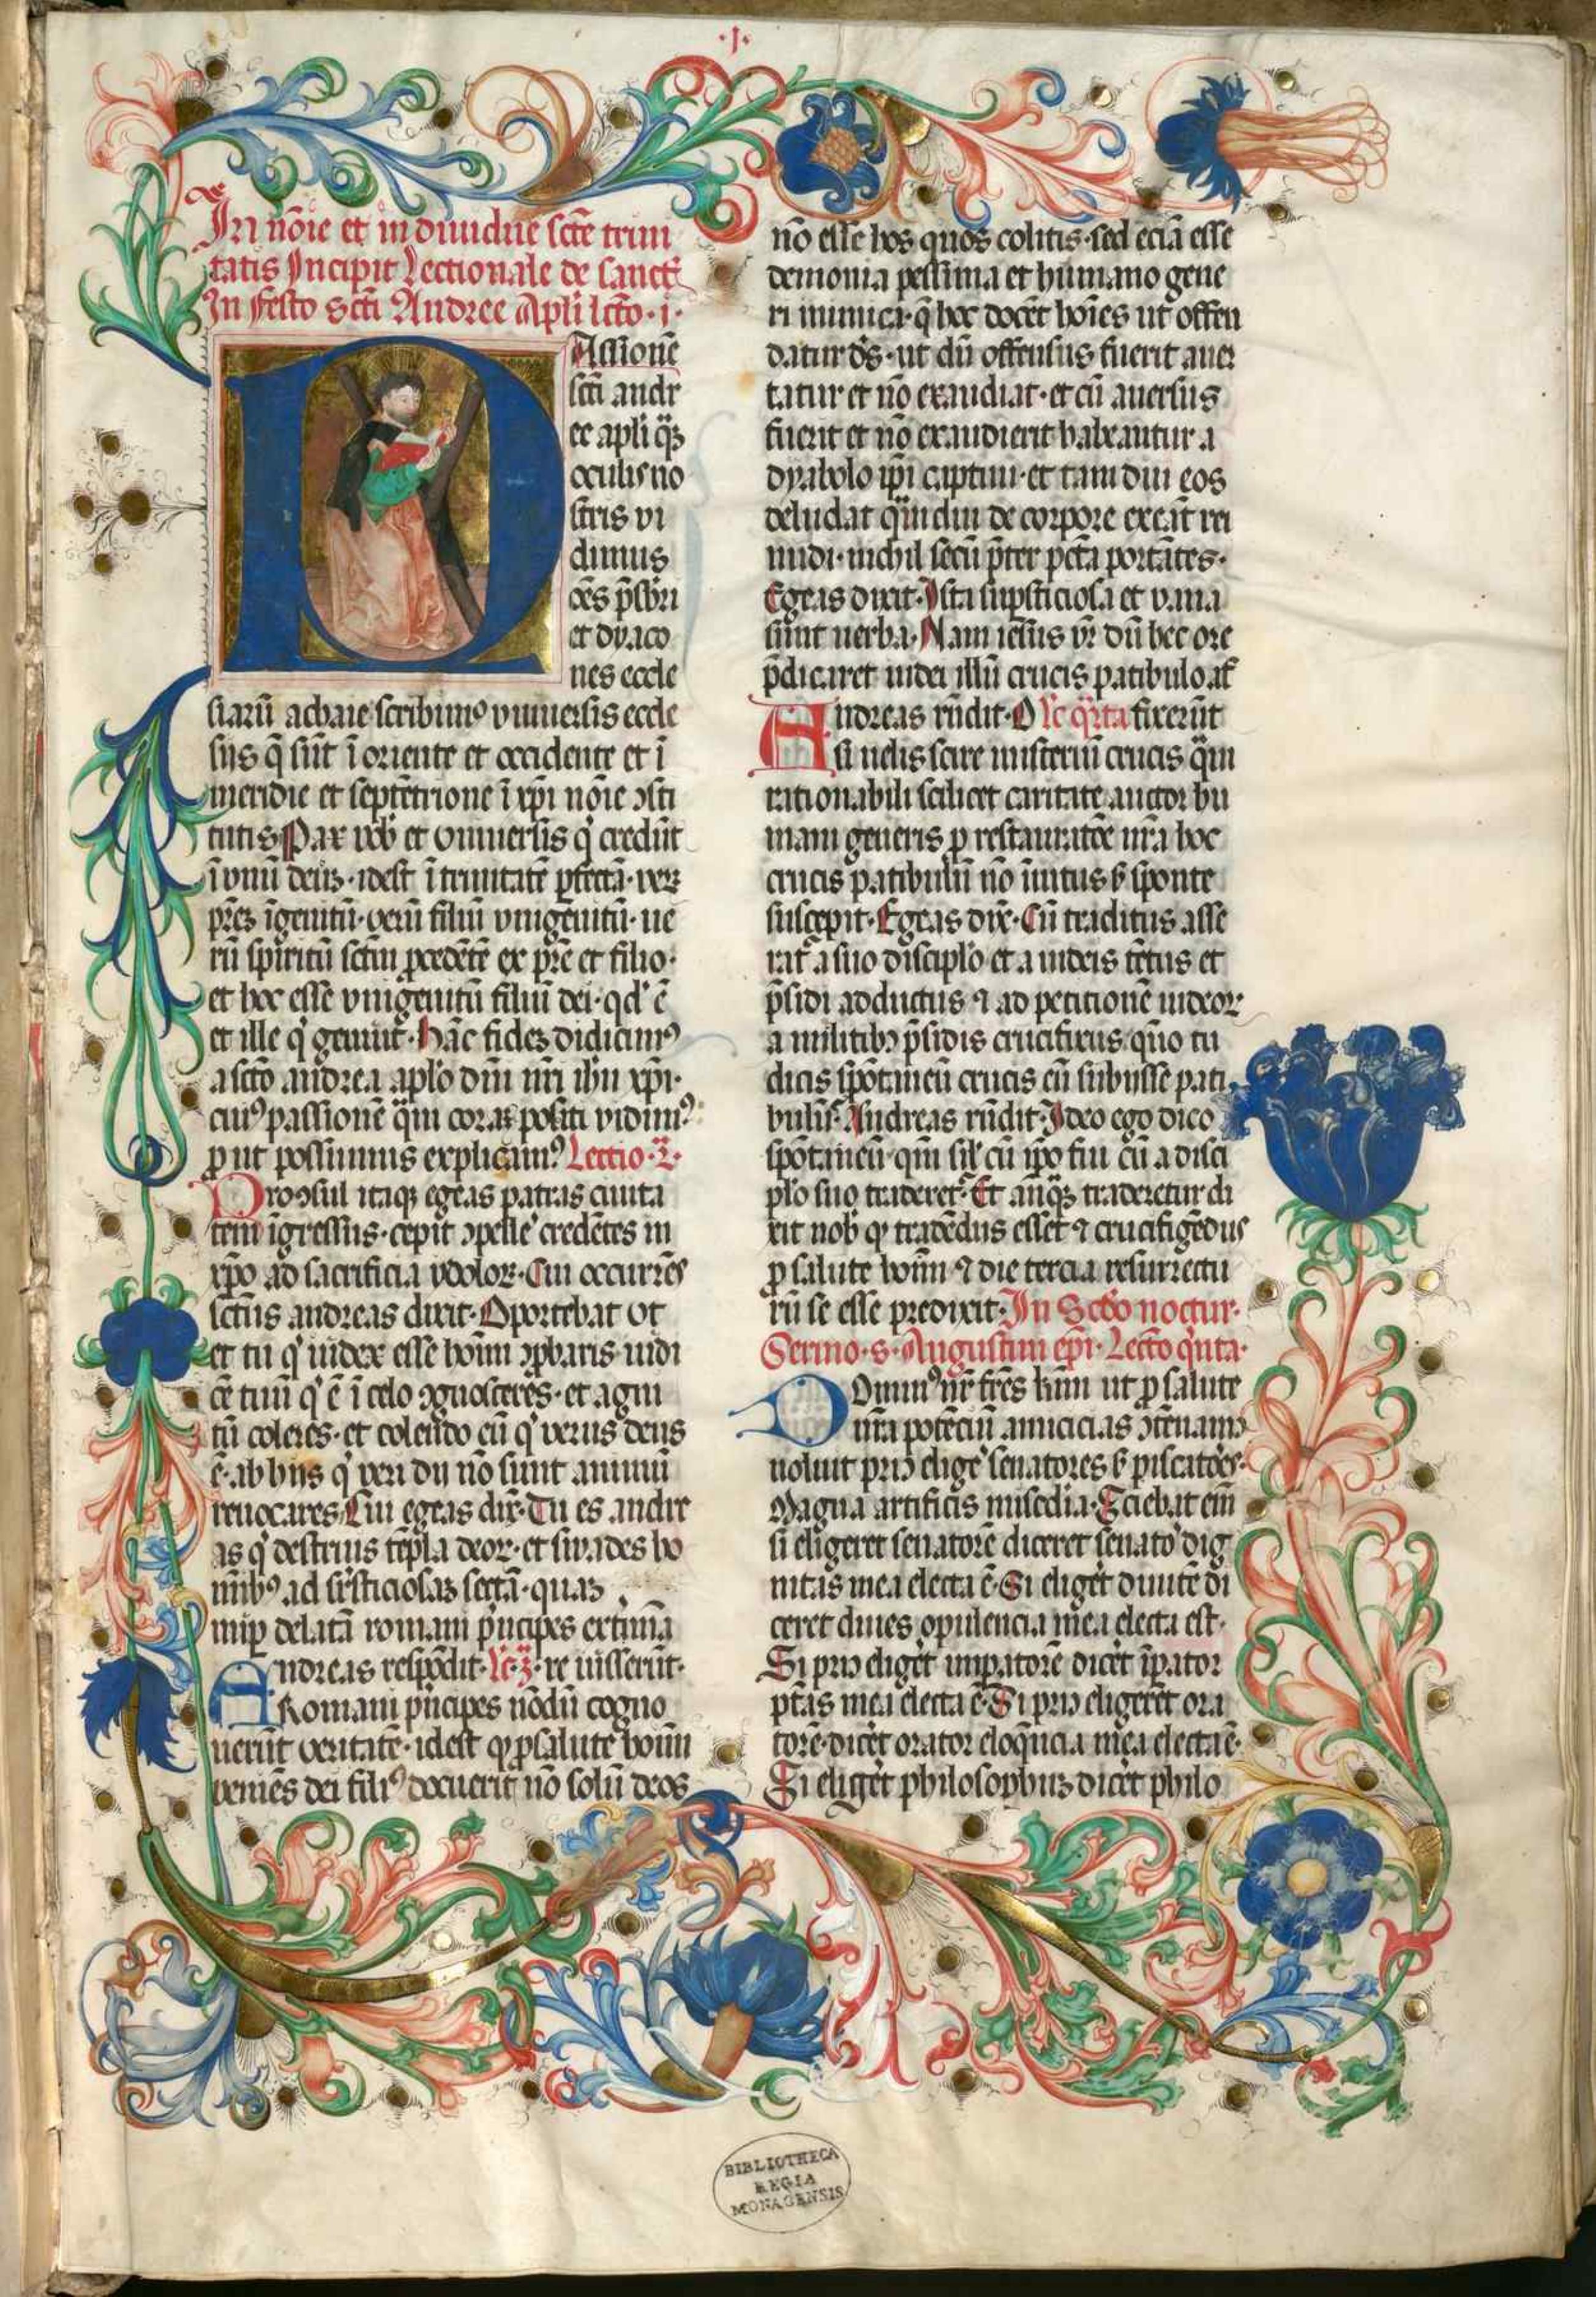 ·J·
In nōīe et indiuidue sctē trini
tatis Incipit Lectionale de sanct̄
In festo scti Andree Apl̄i lcto·i·
Passionē
scti andr
ee apl̄i q̄ꝫ
oculis no
stris vi
dimus
oēs p̄sbr̄i
et dyaco
nes eccle
siarū achaie scribimꝰ vniuersis eccle
siis q̄ sūt ī oriente et occidente et ī
meridie et septētrione ī xp̄i nōīe ↄsti
tutis Pax vob̄ et vniuersis q̇ credūt
ī vnū deūꝫ·idest ī trinitatē ꝑfectā·veꝝ
pr̄eꝫ īgenitū·verū filiū vnigenitū·ue
rū spiritū sctm̄ ꝓcedētē ex pr̄e et filio·
et hoc esse vnigenitū filiū dei·qd' ē
et ille q̇ genuit·Hāc fideꝫ didicimꝰ
a scto andrea apl̄o dn̄i nr̄i ih̄u xp̄i·
cuiꝰ passionē q̄m coraꝫ positi vidimꝰ·
ꝓut possumus explicamꝰ Lectio·2·
Proↄsul itaqꝫ egeas patras ciuita
tem īgressus·cepit ↄpelle' credētes in
xp̄o ad sacrificia ydoloꝝ·Cui occurrēs
sctūs andreas dixit·Oportebat vt
et tu q̇ iudex esse hoīm ↄpbaris iudi
cē tuū q̇ ē ī celo ↄgnosceres·et agni
tū coleres·et colendo eū q̇ verus deus
ē·ab hiis q̇ veri dii nō sunt animū
reuocares Cui egeas dix̄·Tu es andre
as q̇ destruis tēpla deoꝝ·et suades ho
mībꝰ ad sūsticiosaꝫ sectā·quaꝫ
nup̄ delatā romani pͥncipes extīna
Andreas respōdit·lc̄·3·re iusserūt·
Romani pͥncipes nōdū cogno
uerūt veritatē·idest qꝫ ꝓ salute hoīm
veniēs dei filiꝰ docuerit nō solū deos
nō esse hos quos colitis·sed eciā esse
demonia pessima et humano gene
ri inimica·q̄ hoc docēt hoīes ut offen
datur d̄s·ut dū offensus fuerit auer
tatur et nō exaudiat·et cū auersus
fuerit et nō exaudierit habeantur a
dyabolo ip̄i captiui·et tam diu eos
deludat q̄mdiu de corpore exeāt rei
nudi·nichil secū p̄ter pctā portātes·
Egeas dixit·Ista suꝑsticiosa et vana
sunt uerba·Nam iesus vr̄ dū hec ore
p̄dicaret iudei illū crucis patibulo af
Andreas rn̄dit·O lc̄ q̇rta fixerūt
si uelis scire misteriū crucis q̄m
rationabili scilicet caritate auctor hu
mani generis ꝓ restauratōe nr̄a hoc
crucis patibulū nō inuitus ꞩ sponte
suscepit·Egeas dix̄·Cū traditus asse
rat' a suo discipl̄o et a iudeis tētus et
p̄sidi adductus ⁊ ad petitionē iudeoꝝ
a militibꝫ p̄sidis crucifixus quō tu
dicis spōtaneū crucis eū subiisse pati
bulū·Andreas rn̄dit·Ideo ego dico
spōtaneū·qm̄ sil' cū ip̄o fui cū a disci
pl̄o suo traderet'·Et anͣq̄ꝫ traderetur di
xit nob̄ qꝫ tradēdus esset ⁊ crucifigēdus
ꝓ salute hoīm ⁊ die tercia resurrectu
rū se esse predixit·In Scdo noctur·
Sermo·s·Augustini ep̄i·Lecto q̇nta·
Dominꝰ nr̄ fr̄es km̄i ut ꝓ salute
nr̄a potēciū amicicias ↄtēnamꝰ
noluit priꝰ elige' senatores ꞩ piscatōes·
Magna artificis misedīa·Sciebat eni
si eligeret senatorē diceret senato' dig
nitas mea electa ē·Si eligēt diuitē di
ceret diues opulencia mea electa est·
Si priꝰ eligēt impatorē dicēt īpator
ptās mea electa ē·Si priꝰ eligeret ora
torē·dicēt orator eloq̄ncia mea electa ē·
Si eligēt philosophuꝫ dicēt philo
BIBLIOTHECA
REGIA
MONACENSIS